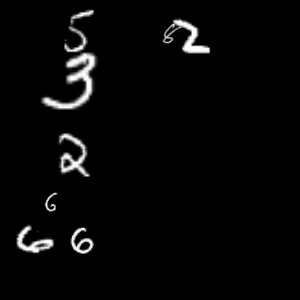 5 82
3
2
6
6 6